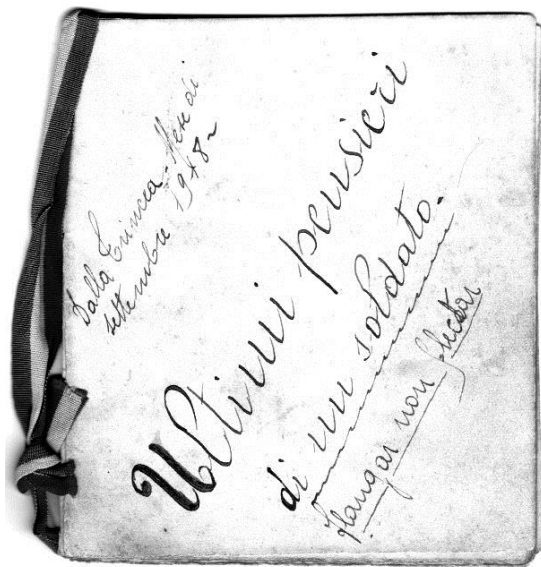 Dalla Trincea. Mese di
settembre 1918~
Ultimi pensieri
di un soldato.
frangar non flectar